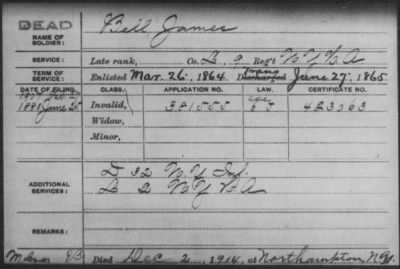 DEAD
NAME OF SOLDIER:
Bell James
SERVICE:
Late rank, Co. L, 9 Reg't N Y H A
TERM OF SERVICE:
Enlisted Mar. 26, 1864 Discharged Trans June 27, 1865
DATE OF FILING. CLASS. APPLICATION NO. LAW. CERTIFICATE NO.
1888 June 25 Invalid, 423063
Widow,
Minor,
ADDITIONAL SERVICES:
D 32 N.Y. Inf.
L 2 N Y H A
REMARKS:
Died Dec 2, 1914, at Northampton N.Y.